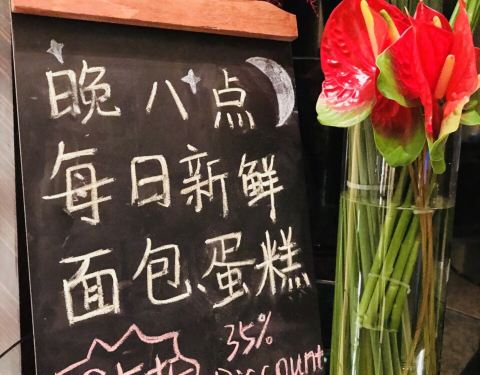 晚八点
每日新鲜
面包、蛋糕
35%
Discount